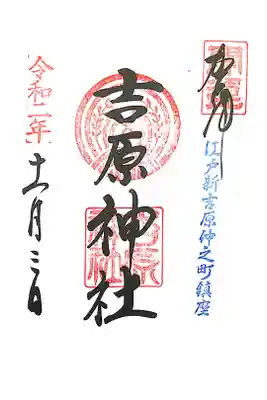 奉拝
江戸新吉原仲之町鎮座
吉原神社
令和二年
十一月三日